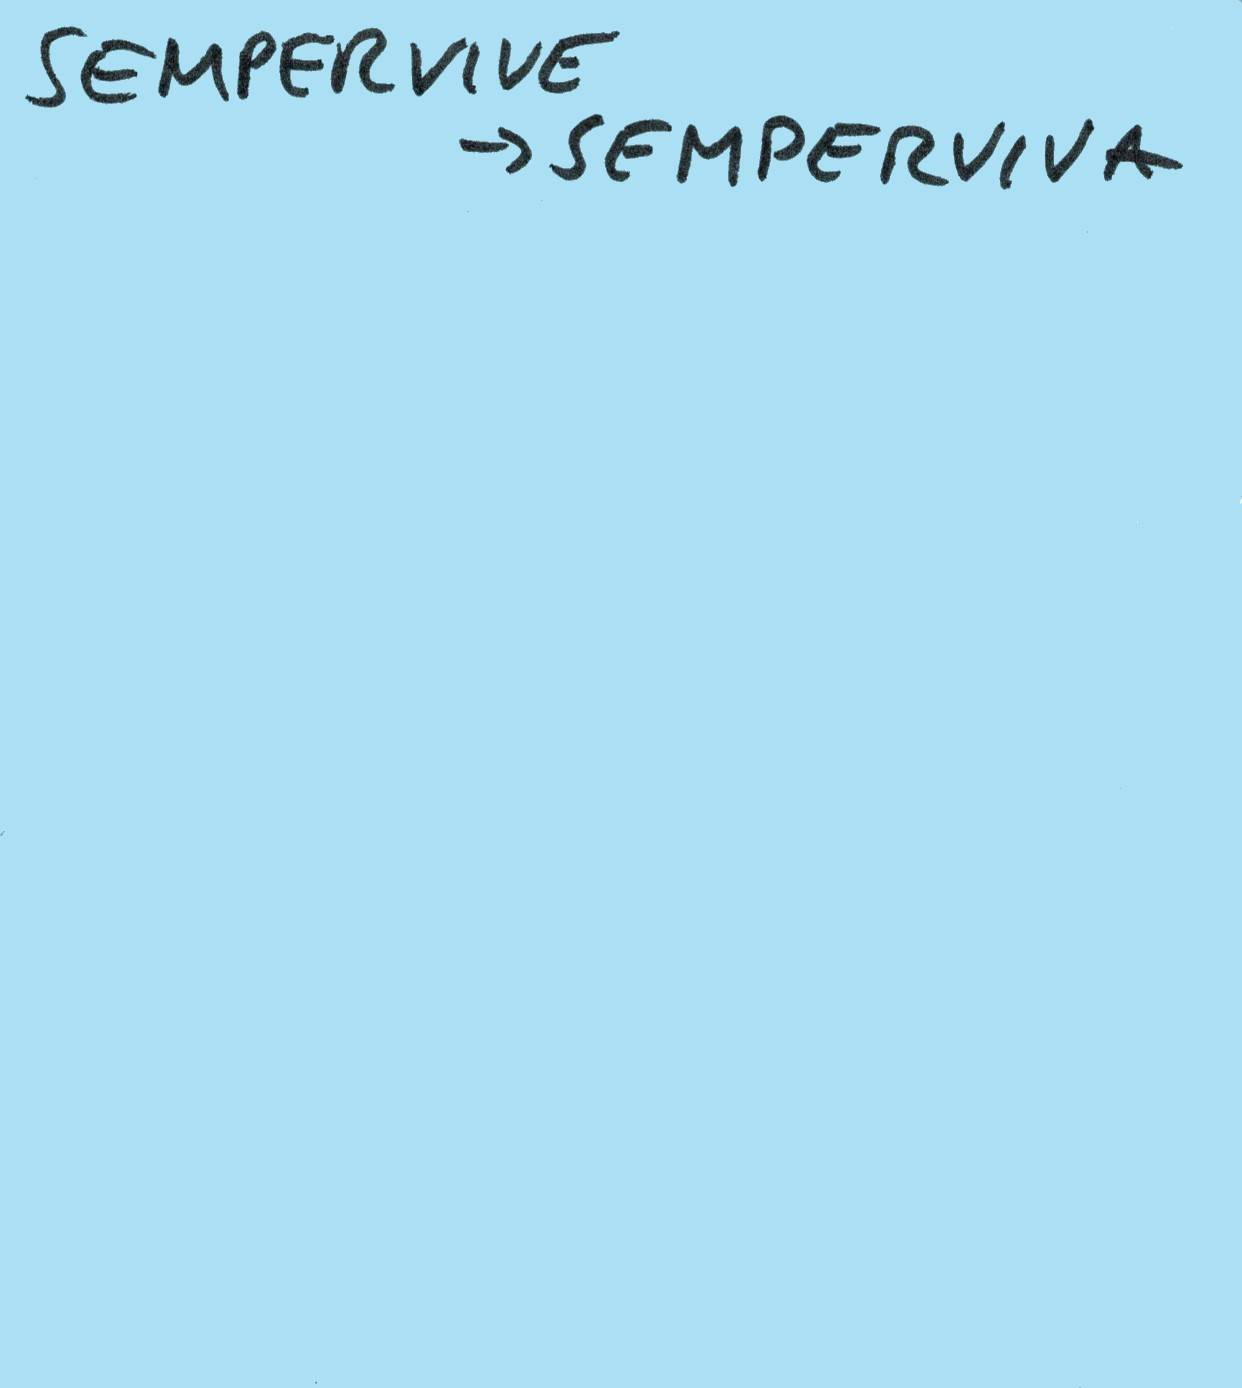 SEMPERVIVE
→ SEMPERVIVA